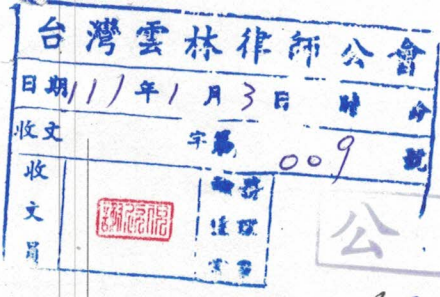 台灣雲林律師公會
日期111年1月3日 時 分
收文 字第009號
收文員
公